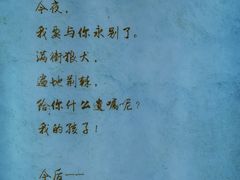 今夜，
我要与你永别了。
满街狼犬，
遍地荆棘，
给你什么遗嘱呢？
我的孩子！
今后——